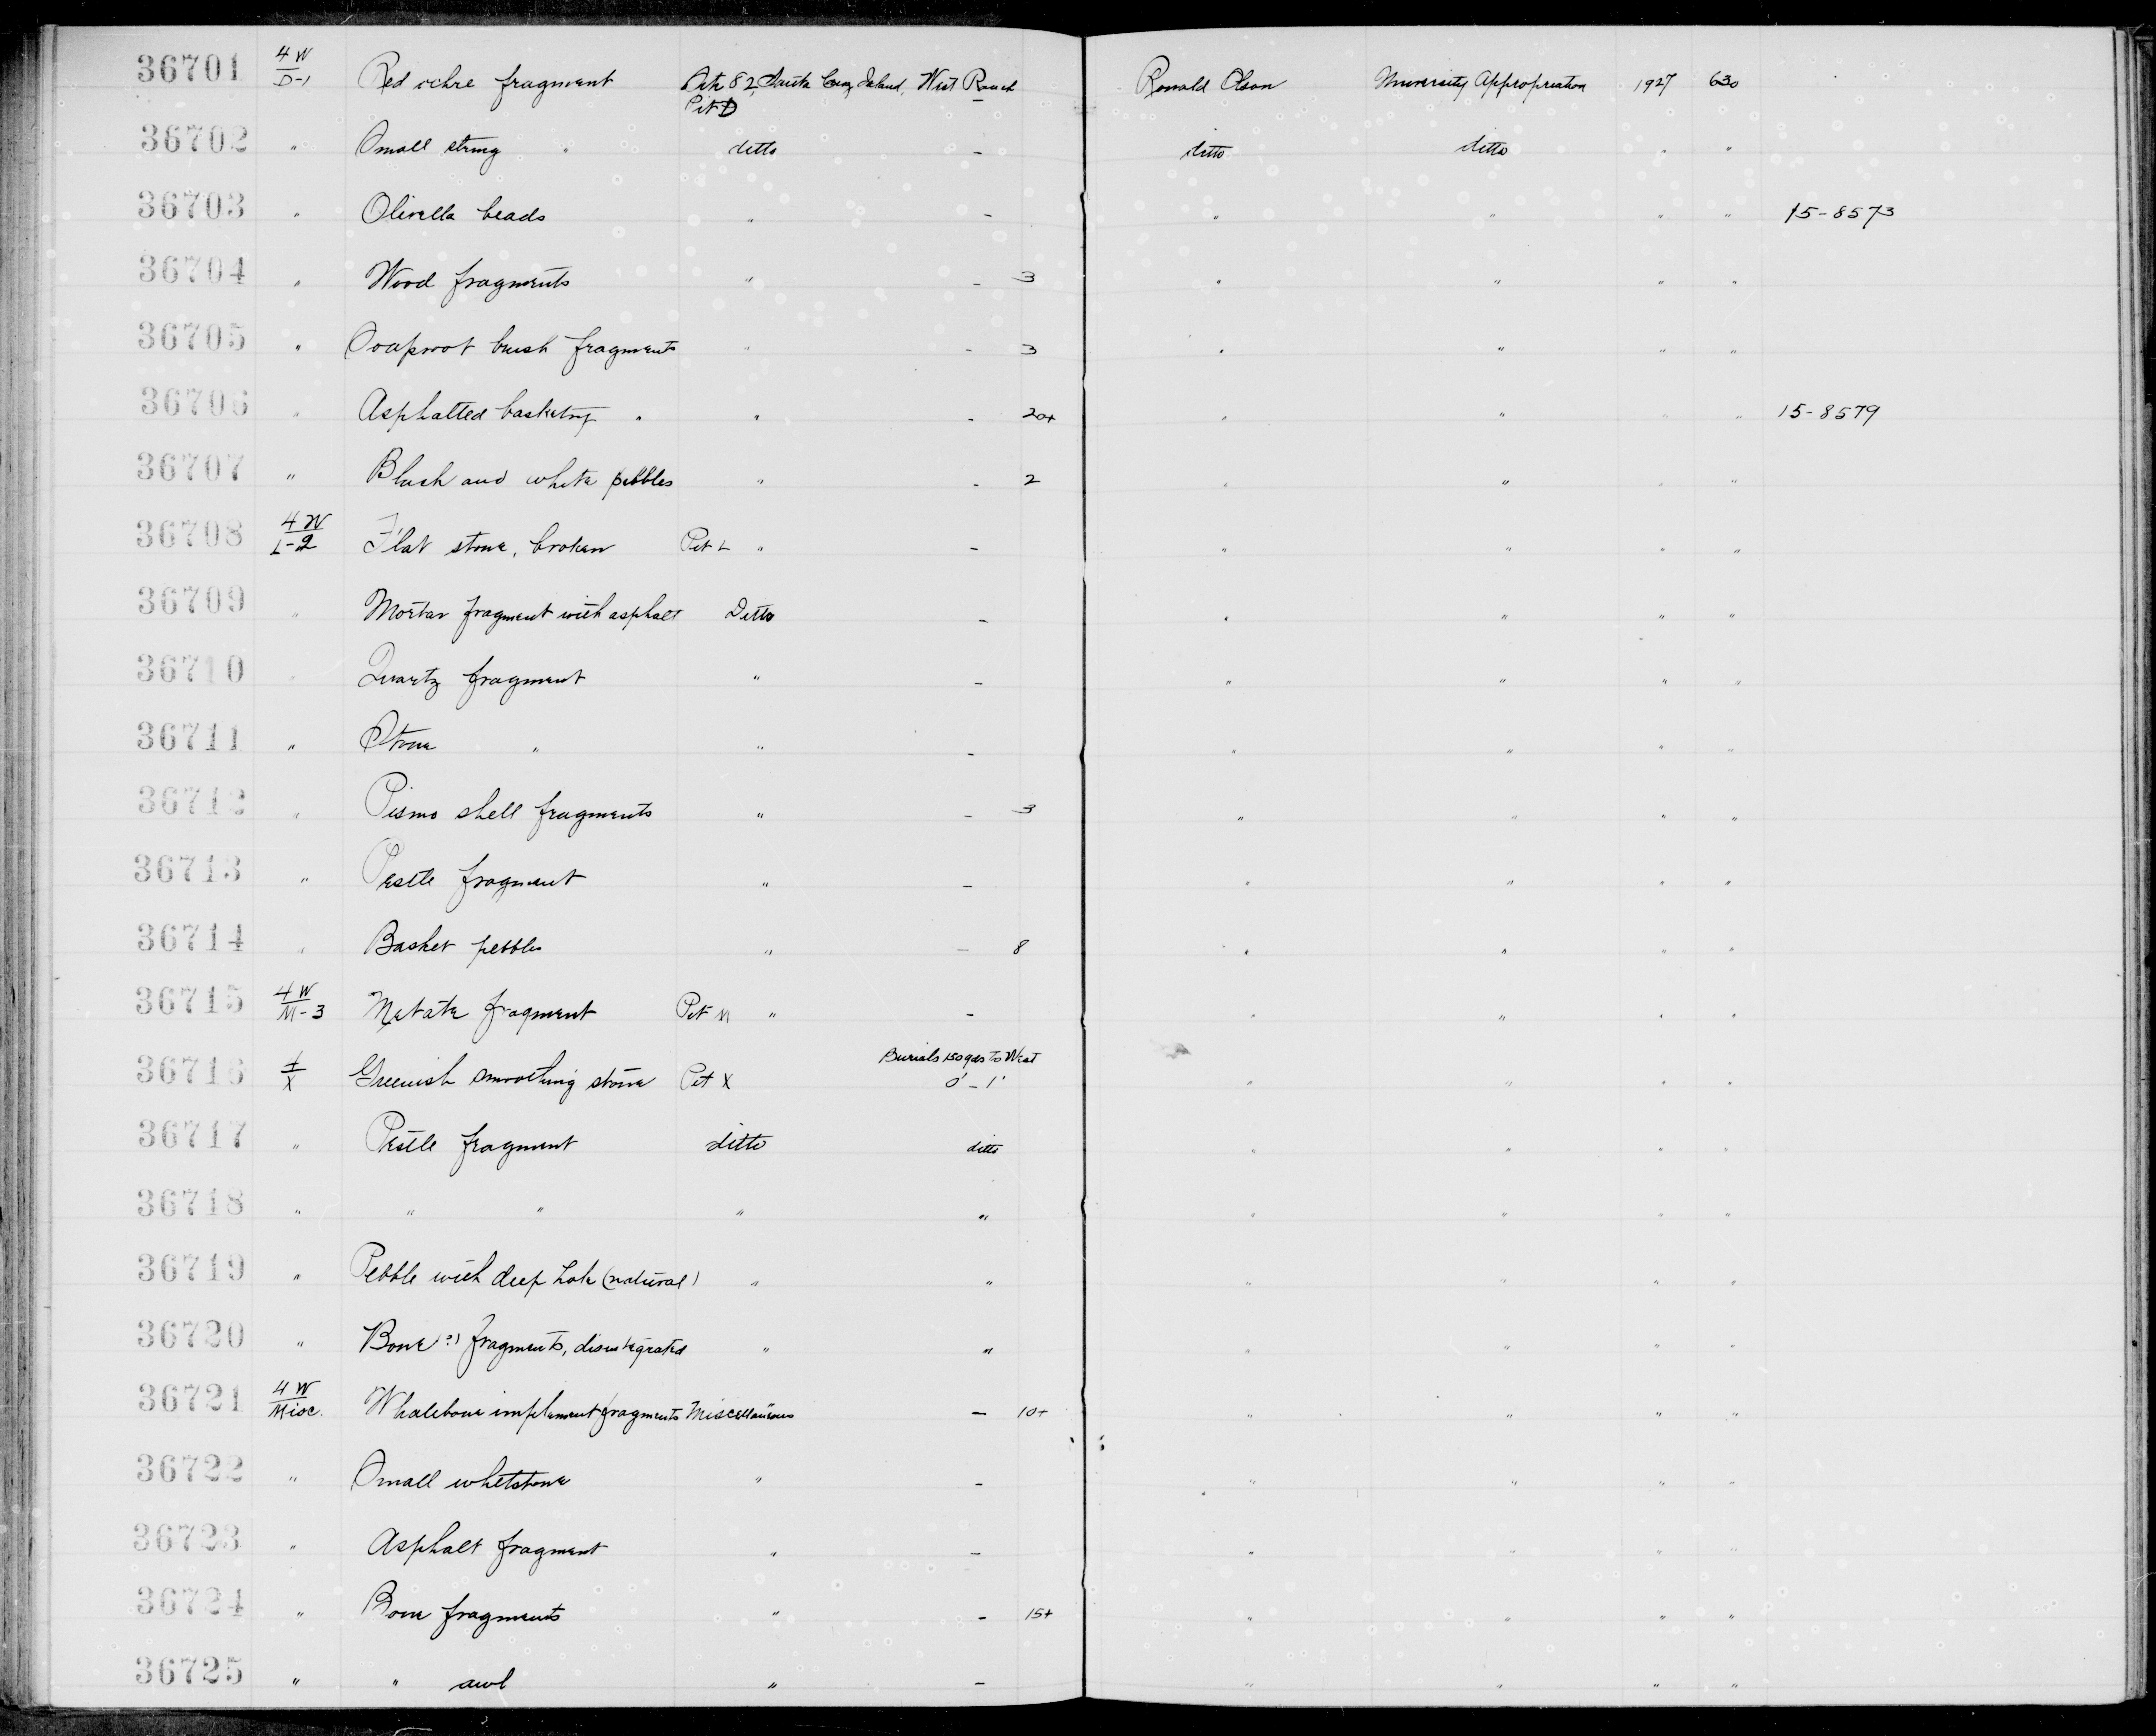 36701 4W/D-1 Red ochre fragment Site 82, Santa Cruz Island, West Ranch Pit D – Ronald Olson University Appropriation 1927 630
36702 " Small string " ditto – ditto ditto " "
36703 " Olivella beads " – " " " " 15-8573
36704 " Wood fragments " – 3 " " " "
36705 " Soaproot brush fragments " – 3 " " " "
36706 " Asphalted basketry " " – 20+ " " " " 15-8579
36707 " Black and white pebbles " – 2 " " " "
36708 4W/L-2 Flat stone, broken Pit L " – " " " "
36709 " Mortar fragment with asphalt Ditto – " " " "
36710 " Quartz fragment " – " " " "
36711 " Stone " " – " " " "
36712 " Pismo shell fragments " – 3 " " " "
36713 " Pestle fragment " – " " " "
36714 " Basket pebbles " – 8 " " " "
36715 4W/M-3 Metate fragment Pit M " – " " " "
36716 1/X Greenish smoothing stone Pit X Burials 150 yds to West 0'-1' " " " "
36717 " Pestle fragment ditto ditto " " " "
36718 " " " " " " " " "
36719 " Pebble with deep hole (natural) " " " " " "
36720 " Bone (?) fragments, disintegrated " " " " " "
36721 4W/Misc. Whalebone implement fragments Miscellaneous – 10+ " " " "
36722 " Small whetstone " – " " " "
36723 " Asphalt fragment " – " " " "
36724 " Bone fragments " – 15+ " " " "
36725 " " awl " – " " " "